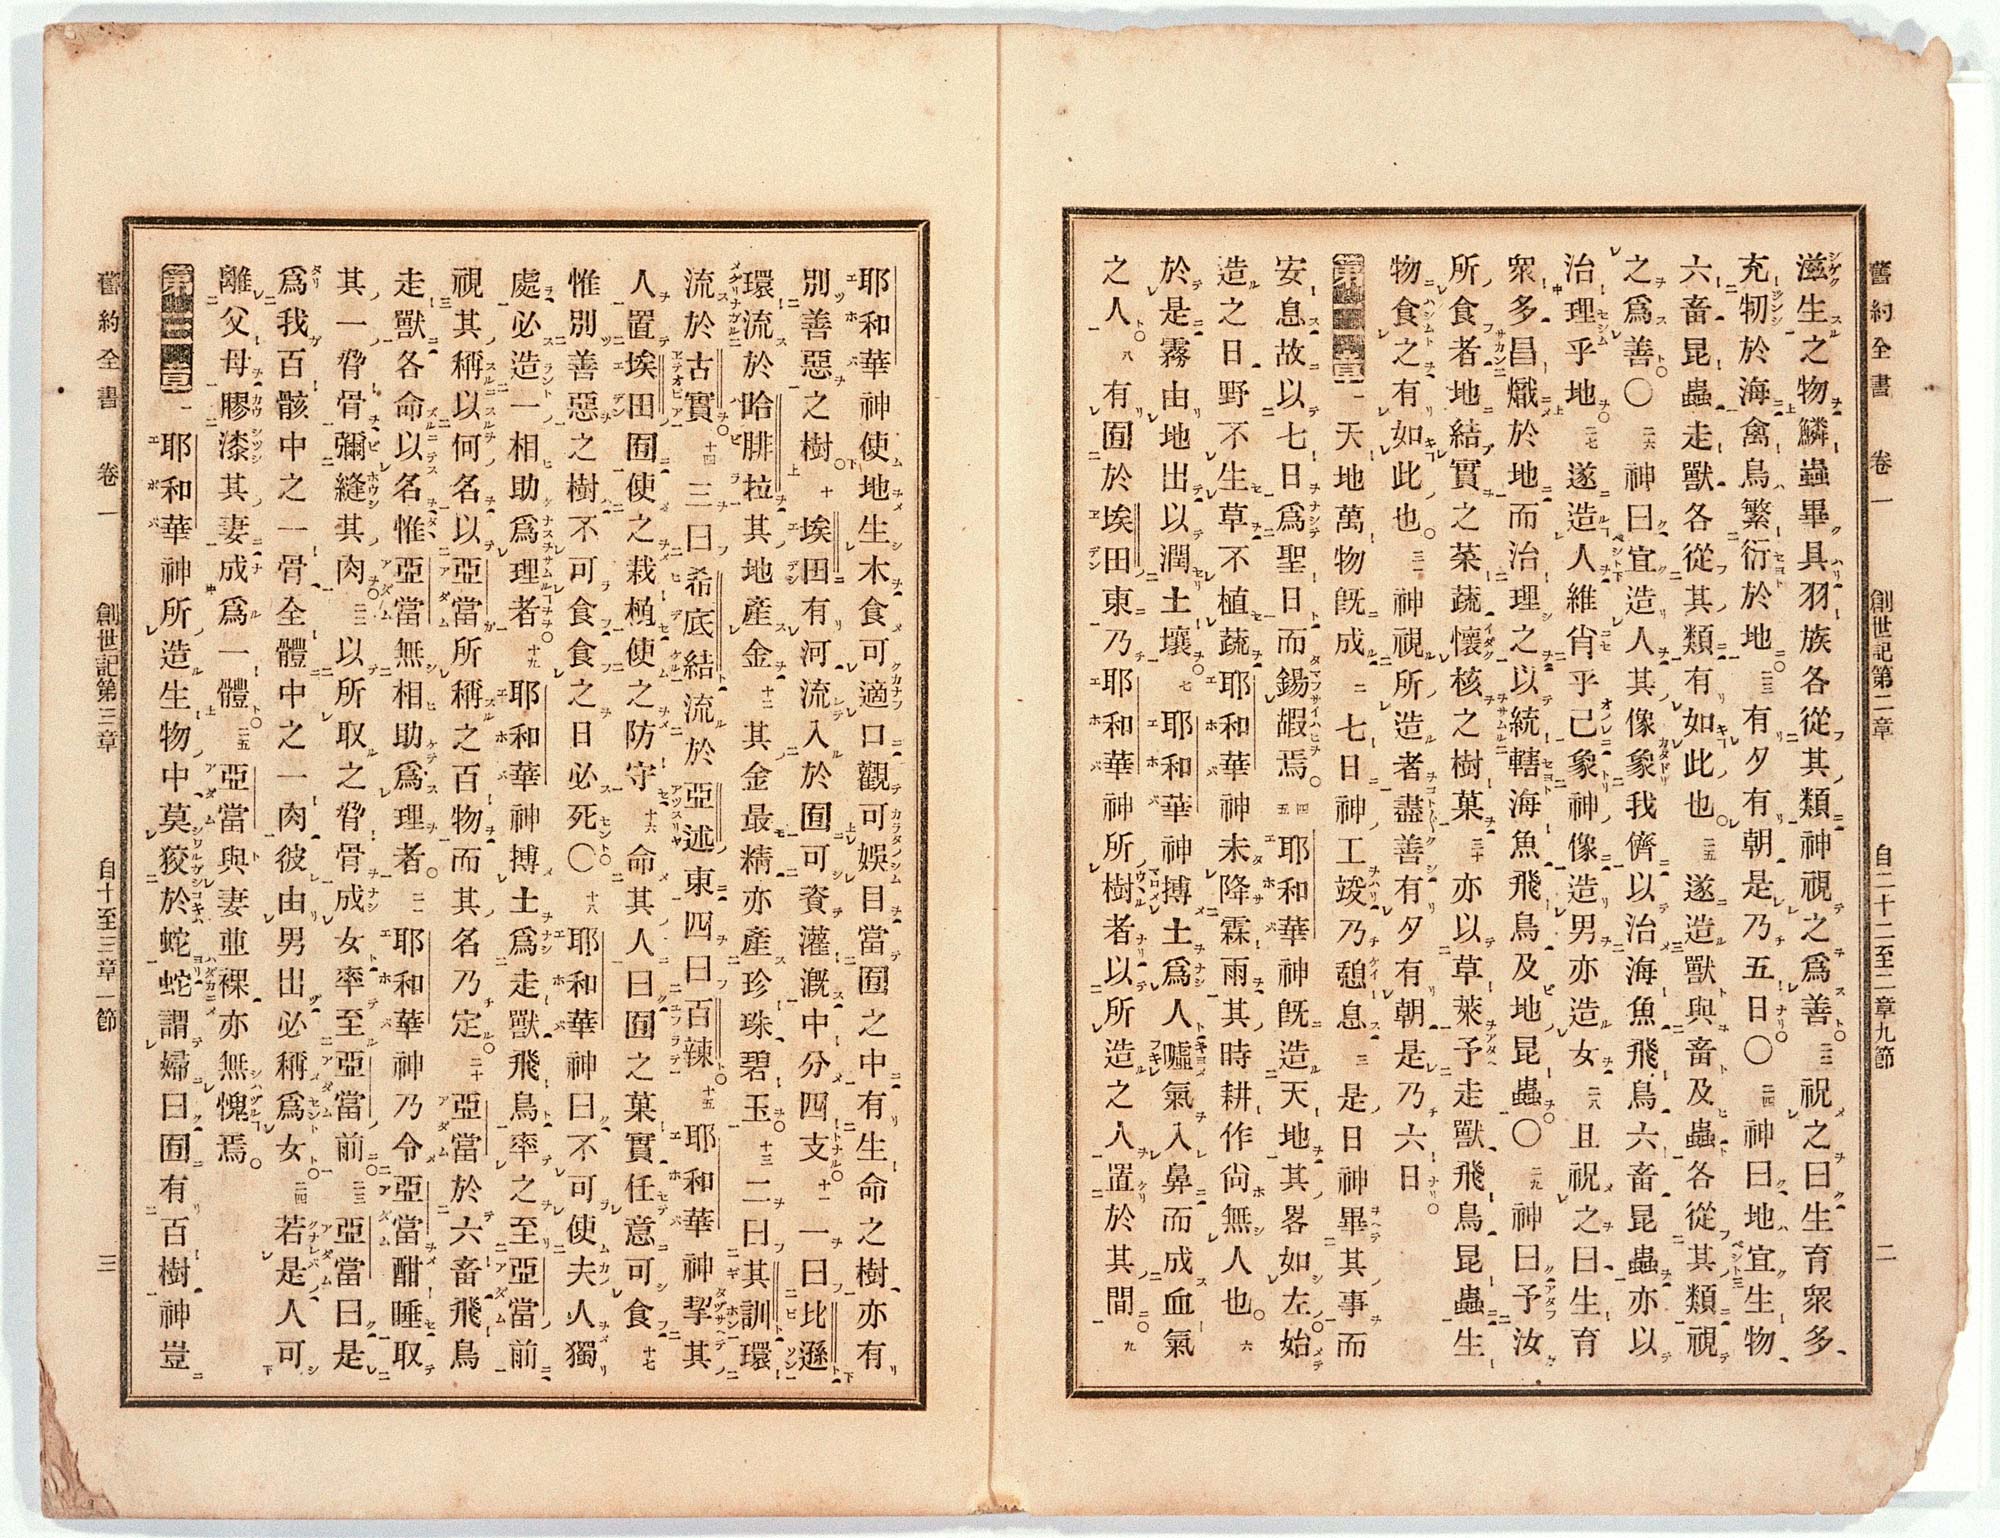 舊約全書 卷一 創世記第二章 自二十二至二章九節 二
滋生之物鱗蟲畢具羽族各從其類神視之爲善○二二祝之曰生育衆多
充牣於海禽鳥繁衍於地○二三有夕有朝是乃五日○二四神曰地宜生物
六畜昆蟲走獸各從其類有如此也。二五遂造獸與畜及蟲各從其類視
之爲善○二六神曰宜造人其像象我儕以治海魚飛鳥六畜昆蟲亦以
治理乎地○二七遂造人維肖乎己象神像造男亦造女二八且祝之曰生育
衆多昌熾於地而治理之以統轄海魚飛鳥及地昆蟲○二九神曰予汝
所食者地結實之菜蔬懷核之樹菓三十亦以草萊予走獸飛鳥昆蟲生
物食之有如此也。三一神視所造者盡善有夕有朝是乃六日
第二章一天地萬物旣成二七日神工竣乃憩息三是日神畢其事而
安息故以七日爲聖日而錫嘏焉。四耶和華神旣造天地其畧如左始
造之日野不生草不植蔬五耶和華神未降霖雨其時耕作尙無人也。六
於是霧由地出以潤土壤○七耶和華神搏土爲人噓氣入鼻而成血氣
之人○八有囿於埃田東乃耶和華神所樹者以所造之人置於其間○九
耶和華神使地生木食可適口觀可娛目當囿之中有生命之樹亦有
別善惡之樹○十埃田有河流入於囿可資灌漑中分四支○十一一曰比遜
環流於哈腓拉其地產金十二其金最精亦產珍珠碧玉○十三二曰其訓環
流於古實○十四三曰希底結流於亞述東四曰百辣○十五耶和華神挈其
人置埃田囿使之栽植使之防守十六命其人曰囿之菓實任意可食十七
惟別善惡之樹不可食食之日必死○十八耶和華神曰不可使夫人獨
處必造一相助爲理者○十九耶和華神搏土爲走獸飛鳥率之至亞當前
視其稱以何名以亞當所稱之百物而其名乃定○二十亞當於六畜飛鳥
走獸各命以名惟亞當無相助爲理者。二一耶和華神乃令亞當酣睡取
其一脅骨彌縫其肉○二二以所取之脅骨成女率至亞當前○二三亞當曰是
爲我百骸中之一骨全體中之一肉彼由男出必稱爲女○二四若是人可
離父母膠漆其妻成爲一體○二五亞當與妻並裸亦無愧焉。
第三章一耶和華神所造生物中莫狡於蛇蛇謂婦曰囿有百樹神豈
舊約全書 卷一 創世記第三章 自十至三章一節 三